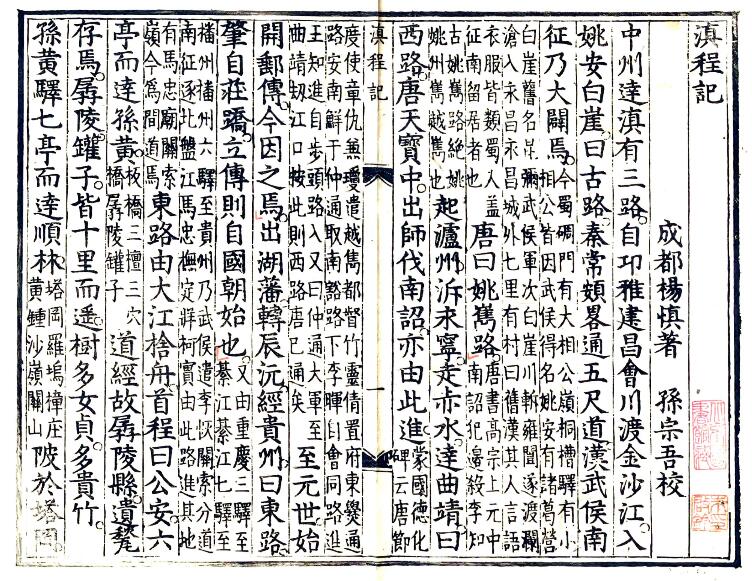 滇程記
成都楊慎著 孫宗吾校
中州達滇有三路自邛雅建昌會川渡金沙江入
姚安白崖曰古路秦常頞畧通五尺道漢武侯南
征乃大闢焉今蜀碉門有大相公嶺桐槽驛有小
相公皆因武侯得名姚安有諸葛營
白崖舊名昆瀰武侯軍次白崖川斬雍闓遂渡瀾
滄入永昌永昌城外七里有村曰舊漢其人言語
衣服皆類蜀人蓋
征南留居者也 唐曰姚嶲路唐書高宗上元中
南詔犯邊殺李知
古姚嶲路絶姚
姚州嶲越嶲也 起瀘州泝永寧走赤水達曲靖曰
西路唐天寶中出師伐南詔亦由此進蒙國德化
碑云唐節
滇程記 一
度使章仇兼瓊遣越嶲都督竹靈倩置府東爨通
路安南鮮于仲通取南谿路下李暉自會同路進
王知進自步頭路入又曰仲通大軍至
曲靖刼江口按此則西路唐已通矣 至元世始
開郵傳今因之焉出湖藩轉辰沅經貴州曰東路
肇自莊蹻立傳則自國朝始也又由重慶三驛至
綦江綦江七驛至
播州播州六驛至貴州乃武侯遣李恢關索分道
南征逐北盤江馬忠撫定牂柯實由此路進其地
有馬忠廟關索
嶺今為間道焉 東路由大江捨舟首程曰公安六
亭而達孫黃板橋三檀三穴
橋孱陵鑵子 道經故孱陵縣遺甃
存焉孱陵鑵子皆十里而遥樹多女貞多貴竹
孫黃驛七亭而達順林塔岡羅塢樟庄
黃鍾沙嶺關山 陂於塔岡